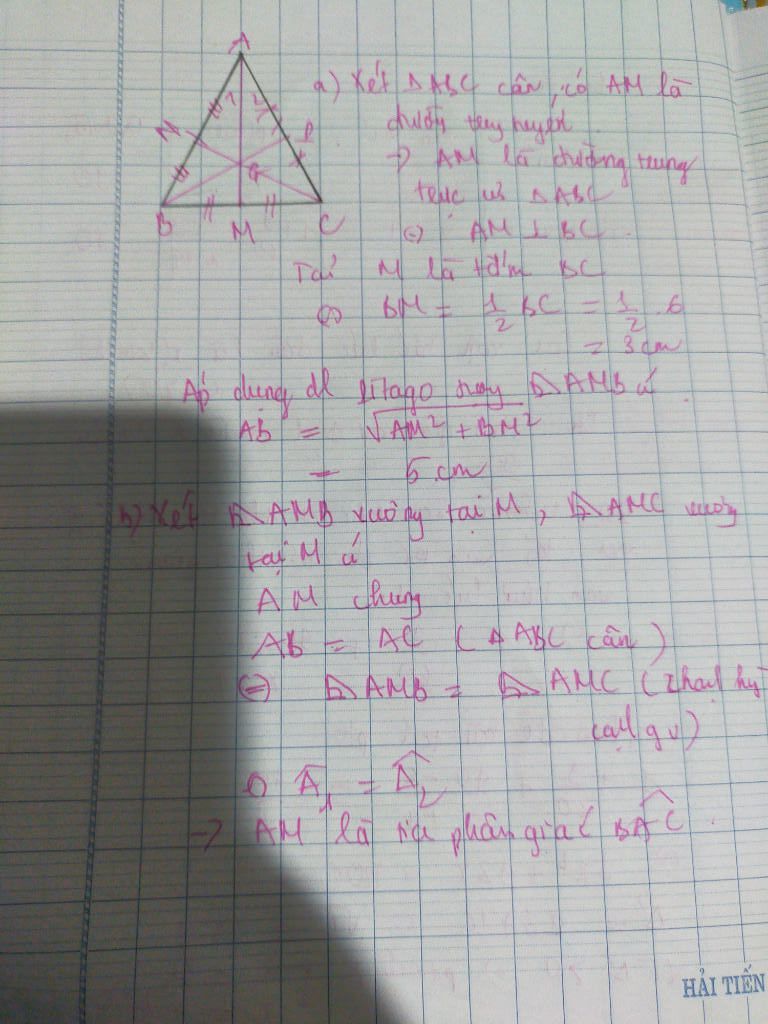 A
1 2
N P
G
B M C
a) Xét △ABC cân, có AM là
đường trung tuyến
→ AM là đường trung
trực của △ABC
⇔ AM ⊥ BC.
Tại M là BC
⇔ BM = 1/2 BC = 1/2 . 6
= 3cm
Áp dụng đl pitago △AMB
AB = √AM² + BM²
= 5 cm
b) Xét △AMB vuông tại M, △AMC vuông
tại M
AM chung
AB = AC (△ABC cân)
⇔ △AMB = △AMC (
)
Â₁ = Â₂
→ AM là phân giác BÂC.
HẢI TIẾN